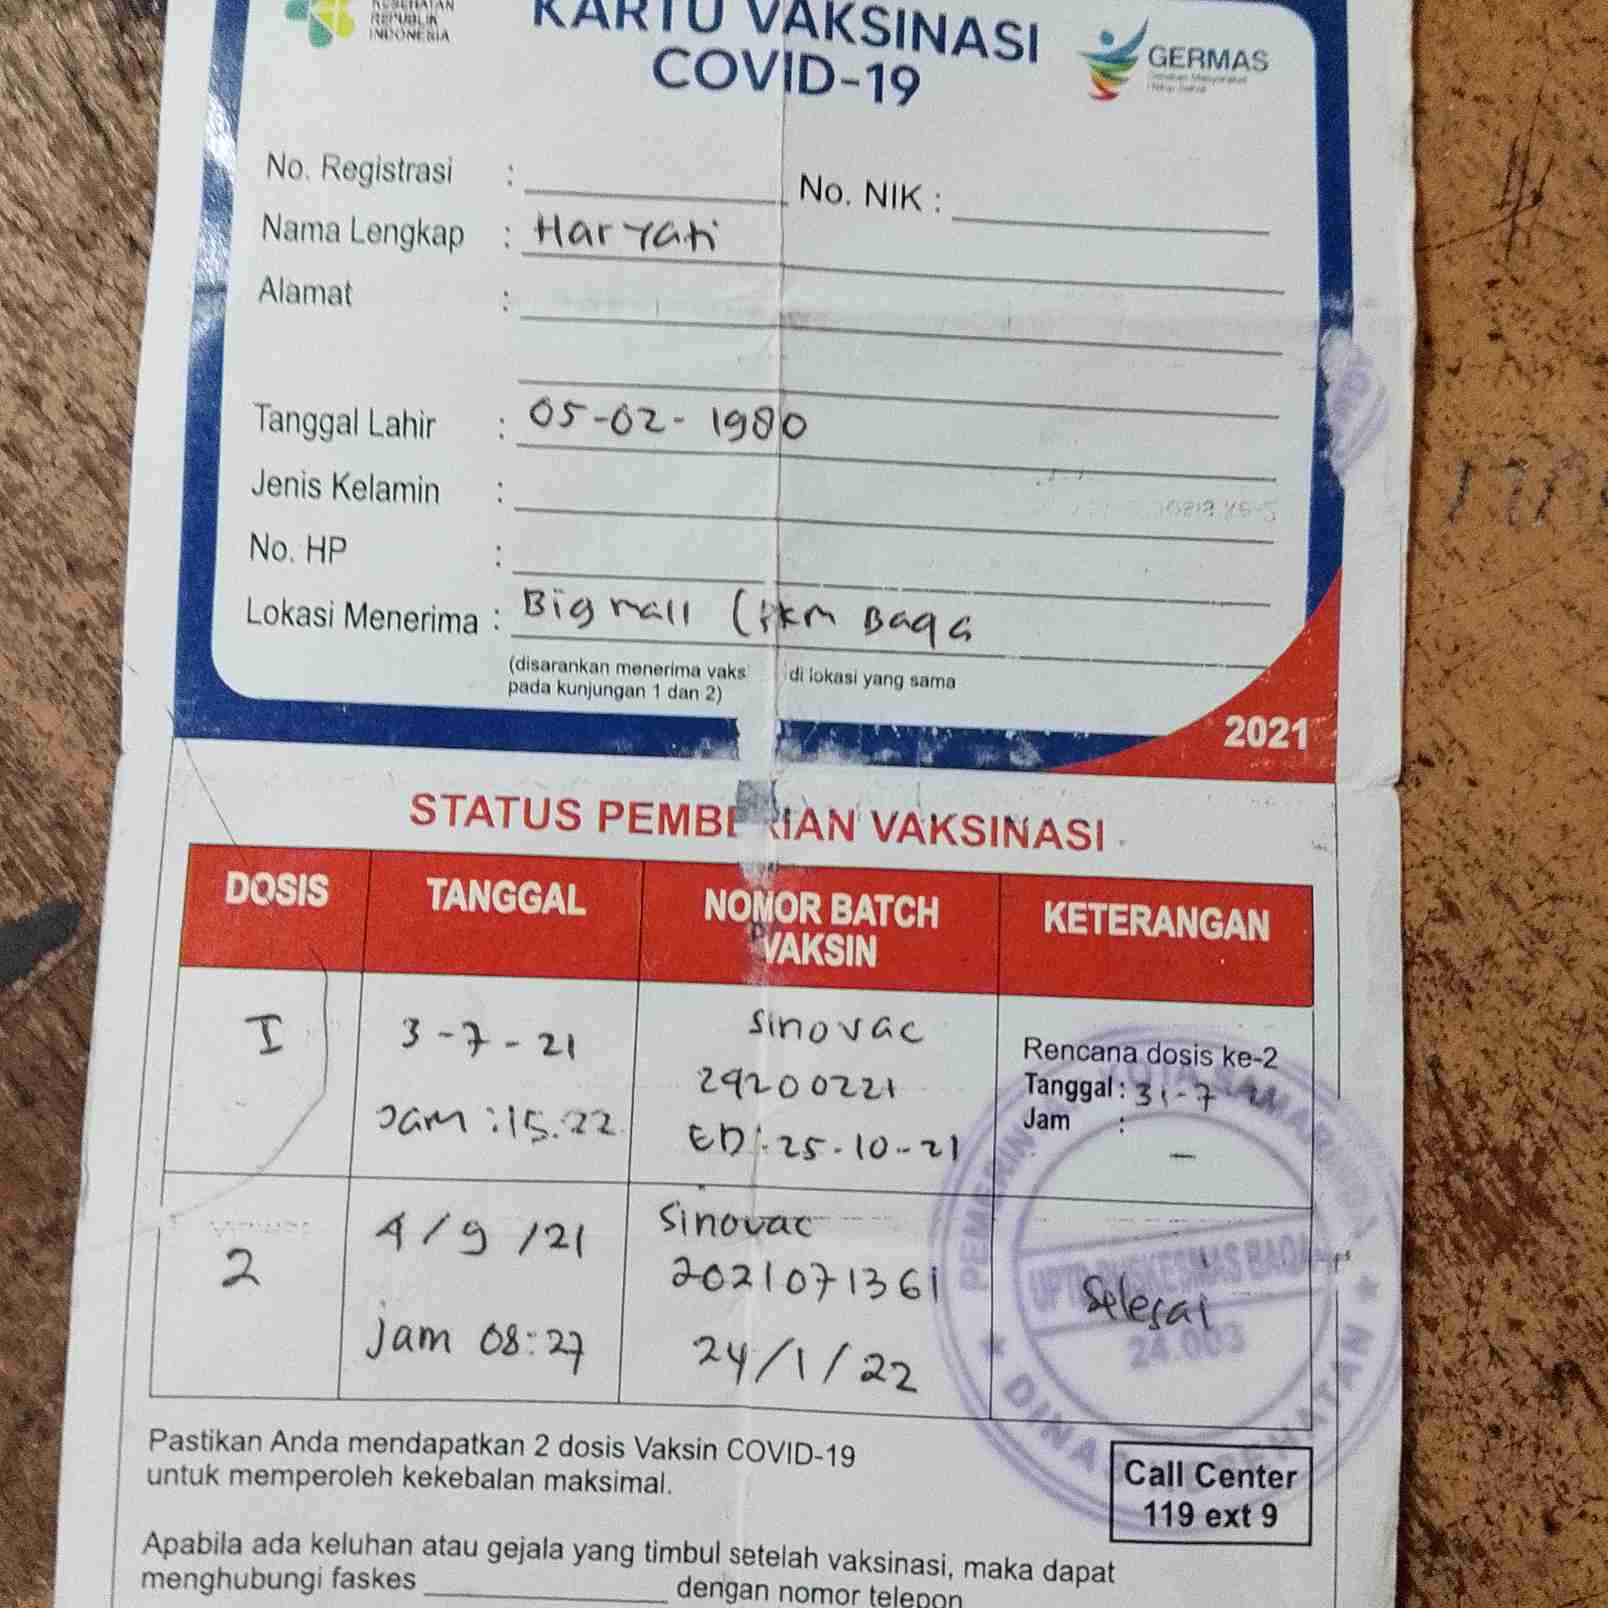 KESEHATAN
REPUBLIK
INDONESIA
KARTU VAKSINASI
COVID-19
GERMAS
No. Registrasi : No. NIK :
Nama Lengkap : Haryati
Alamat :
Tanggal Lahir : 05-02-1980
Jenis Kelamin :
No. HP :
Lokasi Menerima : Bigmall (Pkm Baqa
(disarankan menerima vaks di lokasi yang sama
pada kunjungan 1 dan 2)
2021
STATUS PEMBERIAN VAKSINASI
DOSIS TANGGAL NOMOR BATCH VAKSIN KETERANGAN
I 3-7-21 Sinovac Rencana dosis ke-2
29200221 Tanggal : 31-7
Jam : 15.22 ED : 25-10-21 Jam : -
2 4/9/21 Sinovac
2021071361 Selesai
jam 08:27 24/1/22
PEMERIN KOTA SAMARINDA
UPTD PUSKESMAS BAQA
24.003
DINAS KESEHATAN
Pastikan Anda mendapatkan 2 dosis Vaksin COVID-19
untuk memperoleh kekebalan maksimal.
Call Center
119 ext 9
Apabila ada keluhan atau gejala yang timbul setelah vaksinasi, maka dapat
menghubungi faskes dengan nomor telepon